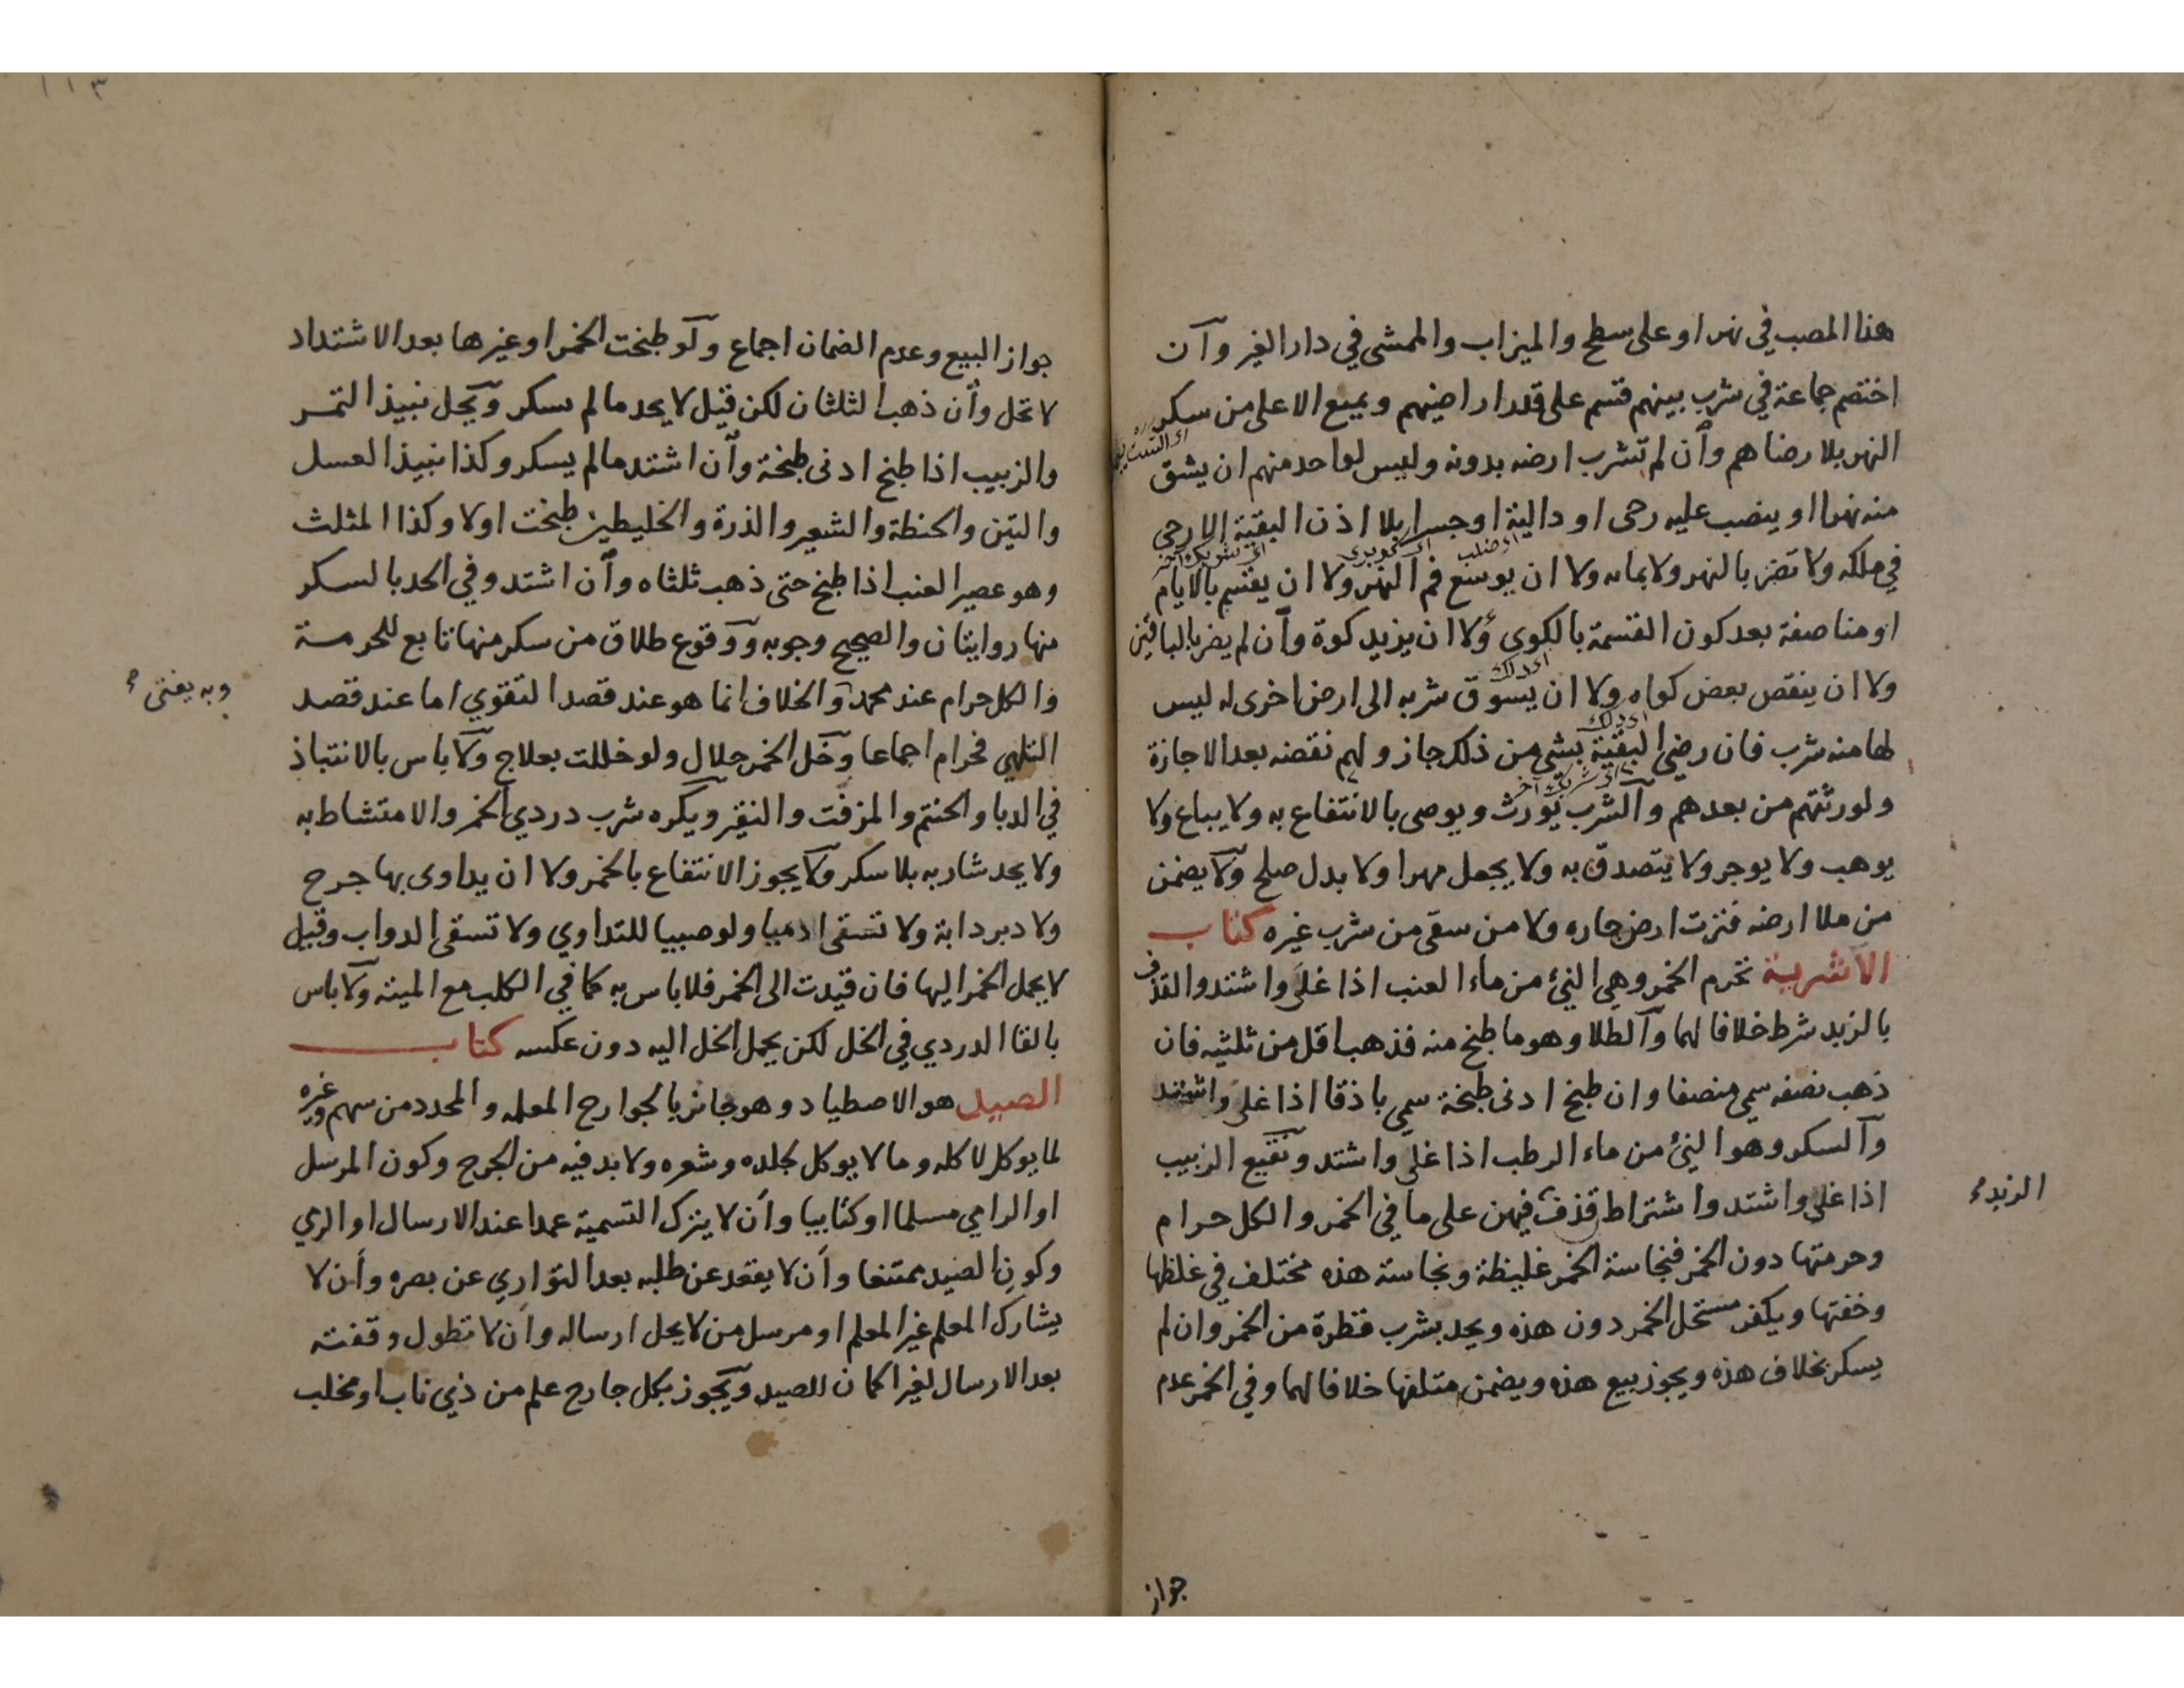 هذا المصب في نهر او على سطح والميزاب والممشى في دار الغير وآن
اختصم جماعة في شرب بينهم قسم على قدر اراضيهم ويمنع الاعلى من سكر
النهر بلا رضاهم وآن لم تشرب ارضه بدونه وليس لواحد منهم ان يشق
منه نهرا او ينصب عليه رحى او دالية او جسرا بلا اذن البقية الا رحى
في ملكه ولا تضر بالنهر ولا بمائه ولا ان يوسع فم النهر ولا ان يقسم بالايام
او مناصفة بعد كون القسمة بالكوى ولا ان يزيد كوة وآن لم يضر بالباقين
ولا ان ينقص بعض كواه ولا ان يسوق شربه الى ارض اخرى له ليس
لها منه شرب فان رضي البقية بشي من ذلك جاز ولهم نقضه بعد الاجازة
ولورثتهم من بعدهم وآلشرب يورث ويوصى بالانتفاع به ولا يباع ولا
يوهب ولا يوجر ولا يتصدق به ولا يجعل مهرا ولا بدل صلح وآلا يضمن
من ملا ارضه فنزت ارض جاره ولا من سقى من شرب غيره كتاب
الاشربة تحرم الخمر وهي النئ من ماء العنب اذا غلى واشتد والقذف
بالزبد شرط خلافا لهما وآلطلا وهو ما طبخ منه فذهب اقل من ثلثيه فان
ذهب نصفه سمي منصفا وان طبخ ادنى طبخة سمي باذقا اذا غلى واشتد
وآلسكر وهو النئ من ماء الرطب اذا غلى واشتد ونقيع الزبيب
اذا غلى واشتد واشتراط قذف فيهن على ما في الخمر والكل حرام
الزبد
وحرمتها دون الخمر فنجاسة الخمر غليظة ونجاسة هذه مختلف في غلظها
وخفتها ويكفر مستحل الخمر دون هذه ويحد بشرب قطرة من الخمر وان لم
يسكر بخلاف هذه ويجوز بيع هذه ويضمن متلفها خلافا لهما وفي الخمر عدم
جواز
١١٣
جواز البيع وعدم الضمان اجماع ولو طبخت الخمر او غيرها بعد الاشتداد
لا تحل وأن ذهب الثلثان لكن قيل لا يحد ما لم يسكر ويحل نبيذ التمر
والزبيب اذا طبخ ادنى طبخة وآن اشتد ما لم يسكر وكذا نبيذ العسل
والتين والحنطة والشعير والذرة والخليطين طبخت اولا وكذا المثلث
وهو عصير العنب اذا طبخ حتى ذهب ثلثاه وآن اشتد وفي الحد بالسكر
منها روايتان والصحيح وجوبه ووقوع طلاق من سكر منها تابع للحرمة
والكل حرام عند محمد وآلخلاف انما هو عند قصد التقوي اما عند قصد
وبه يفتى
التلهي فحرام اجماعا وخل الخمر حلال ولو خللت بعلاج ولا باس بالانتباذ
في الدبا والحنتم والمزفت والنقير ويكره شرب دردي الخمر والامتشاط به
ولا يحد شاربه بلا سكر ولا يجوز الانتفاع بالخمر ولا ان يداوى بها جرح
ولا دبر دابة ولا تسقى ادميا ولو صبيا للتداوي ولا تسقى الدواب وقيل
لا يحمل الخمر اليها فان قيدت الى الخمر فلا باس به كما في الكلب مع الميتة ولا باس
بالقا الدردي في الخل لكن يحمل الخل اليه دون عكسه كتاب
الصيد هو الاصطياد وهو جائز بالجوارح المعلمه والمحدد من سهم وغيره
لما يوكل لاكله وما لا يوكل لجلده وشعره ولا بد فيه من الجرح وكون المرسل
او الرامي مسلما او كتابيا وأن لا يترك التسمية عمدا عند الارسال او الرمي
وكون الصيد ممتنعا وأن لا يقعد عن طلبه بعد التواري عن بصره وأن لا
يشارك المعلم غير المعلم او مرسل من لا يحل ارساله وأن لا تطول وقفته
بعد الارسال لغير اكمان الصيد ويجوز بكل جارح علم من ذي ناب او مخلب